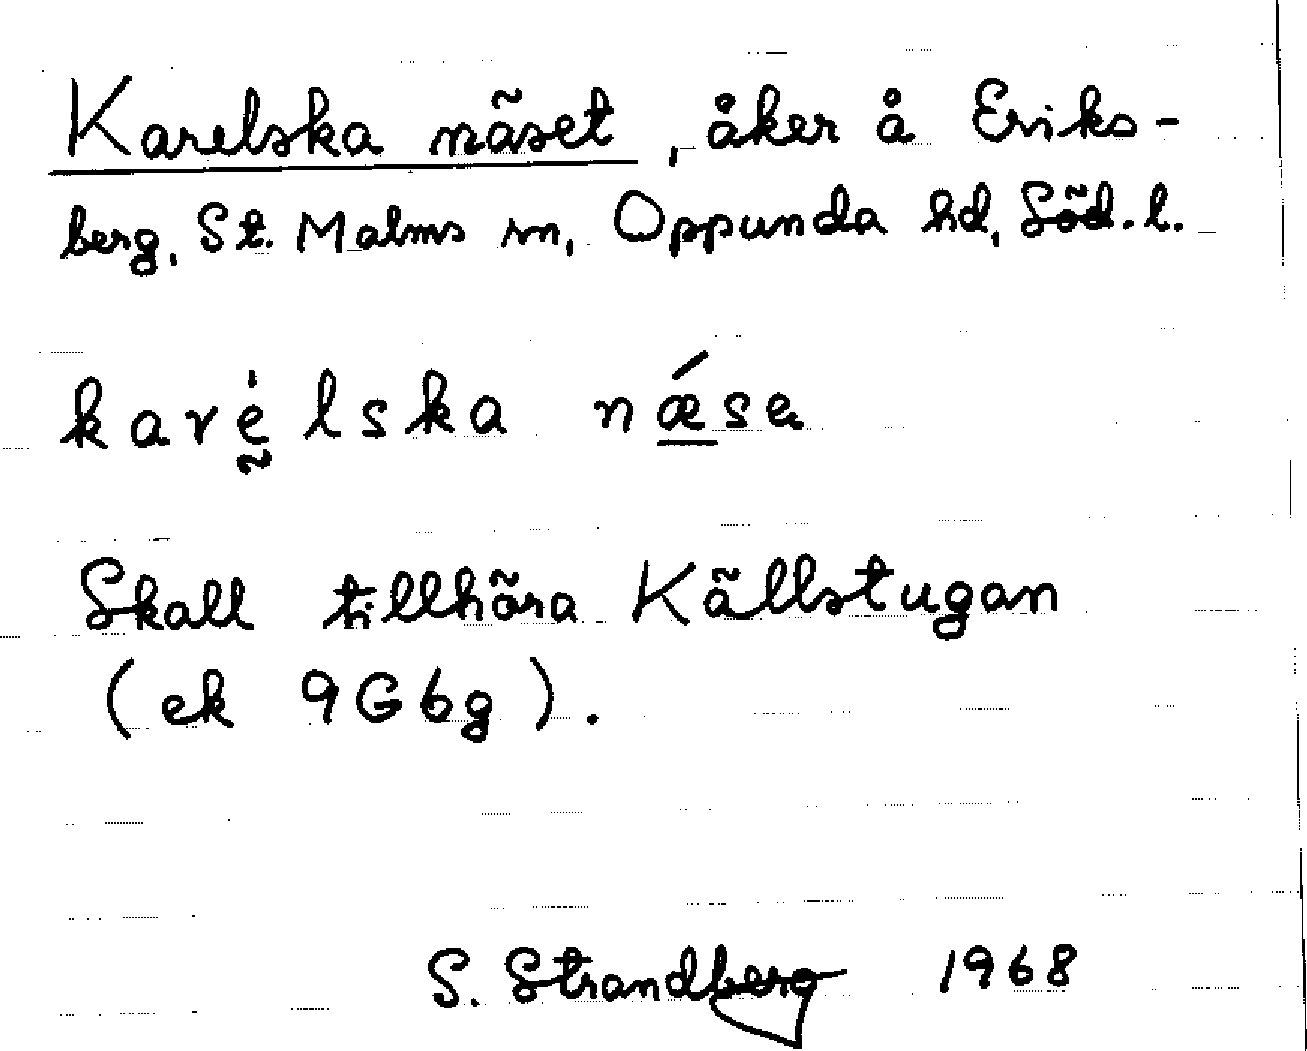 Karelska näset, åker å Eriks-
berg, St. Malms sn, Oppunda hd, Söd. l.
karḛ̍lska nǽse
Skall tillhöra Källstugan
(ek 9G6g).
S. Strandberg 1968